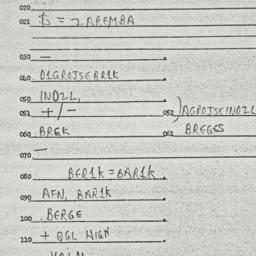 020
021 $ = 2 AREMBA
030 —
040 O1GROTSEBR1K
050 INDZL,
051 + / — 052 ) AGROTSEINDZL
060 BREK 061 BREGES
070 —
080 BER1K = BAR1K
090 AFN, BAR1K
100 BERGE
110 + OGL HIGN